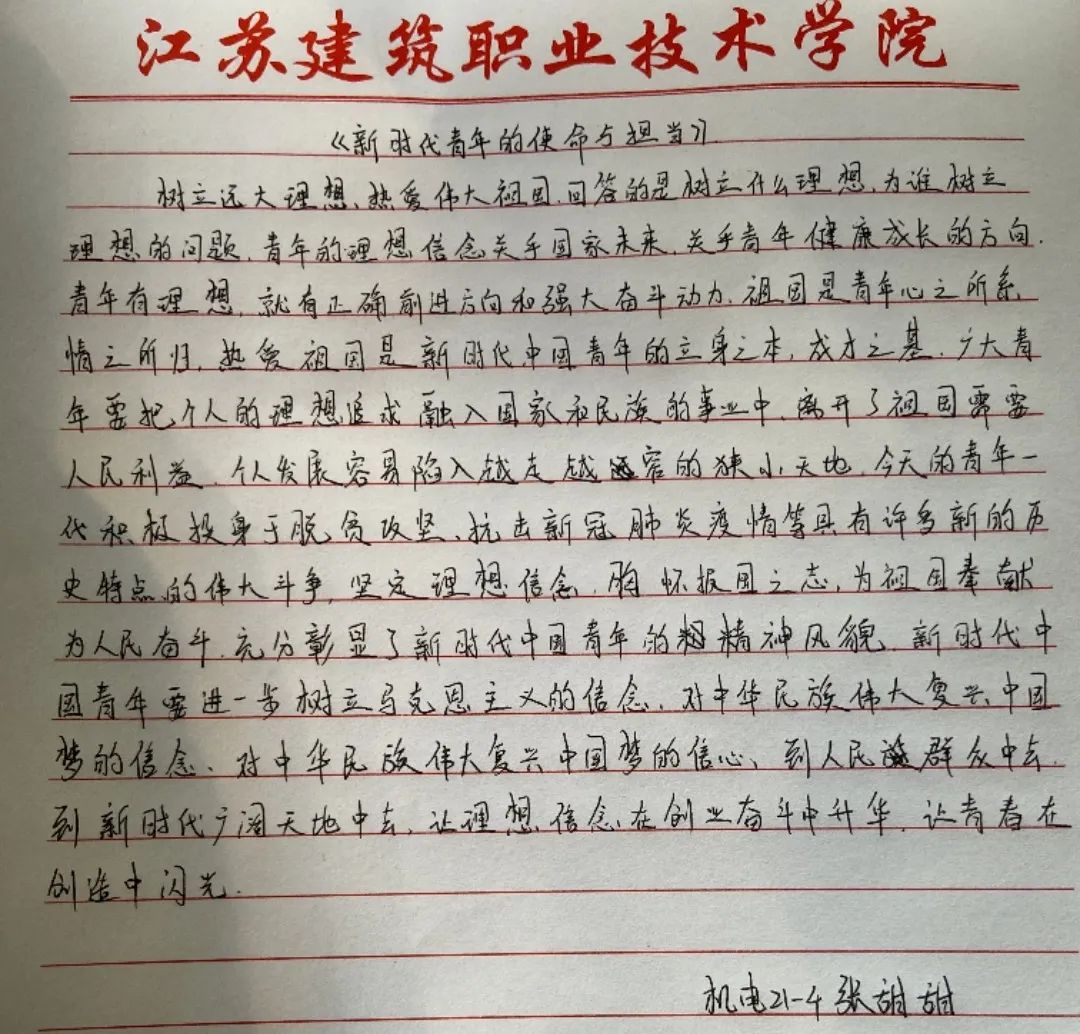 江苏建筑职业技术学院
《新时代青年的使命与担当》
树立远大理想、热爱伟大祖国.回答的是树立什么理想、为谁树立
理想的问题.青年的理想信念关乎国家未来.关乎青年健康成长的方向.
青年有理想，就有正确前进方向和强大奋斗动力.祖国是青年心之所系
情之所归.热爱祖国是新时代中国青年的立身之本，成才之基.广大青
年要把个人的理想追求融入国家和民族的事业中.离开了祖国需要
人民利益.个人发展容易陷入越走越窄的狭小天地.今天的青年一
代积极投身于脱贫攻坚、抗击新冠肺炎疫情等具有许多新的历
史特点的伟大斗争，坚定理想信念.胸怀报国之志，为祖国奉献
为人民奋斗.充分彰显了新时代中国青年的精神风貌.新时代中
国青年要进一步树立马克思主义的信念、对中华民族伟大复兴中国
梦的信念、对中华民族伟大复兴中国梦的信心，到人民群众中去.
到新时代广阔天地中去，让理想信念在创业奋斗中升华.让青春在
创造中闪光.
机电21-4 张甜甜